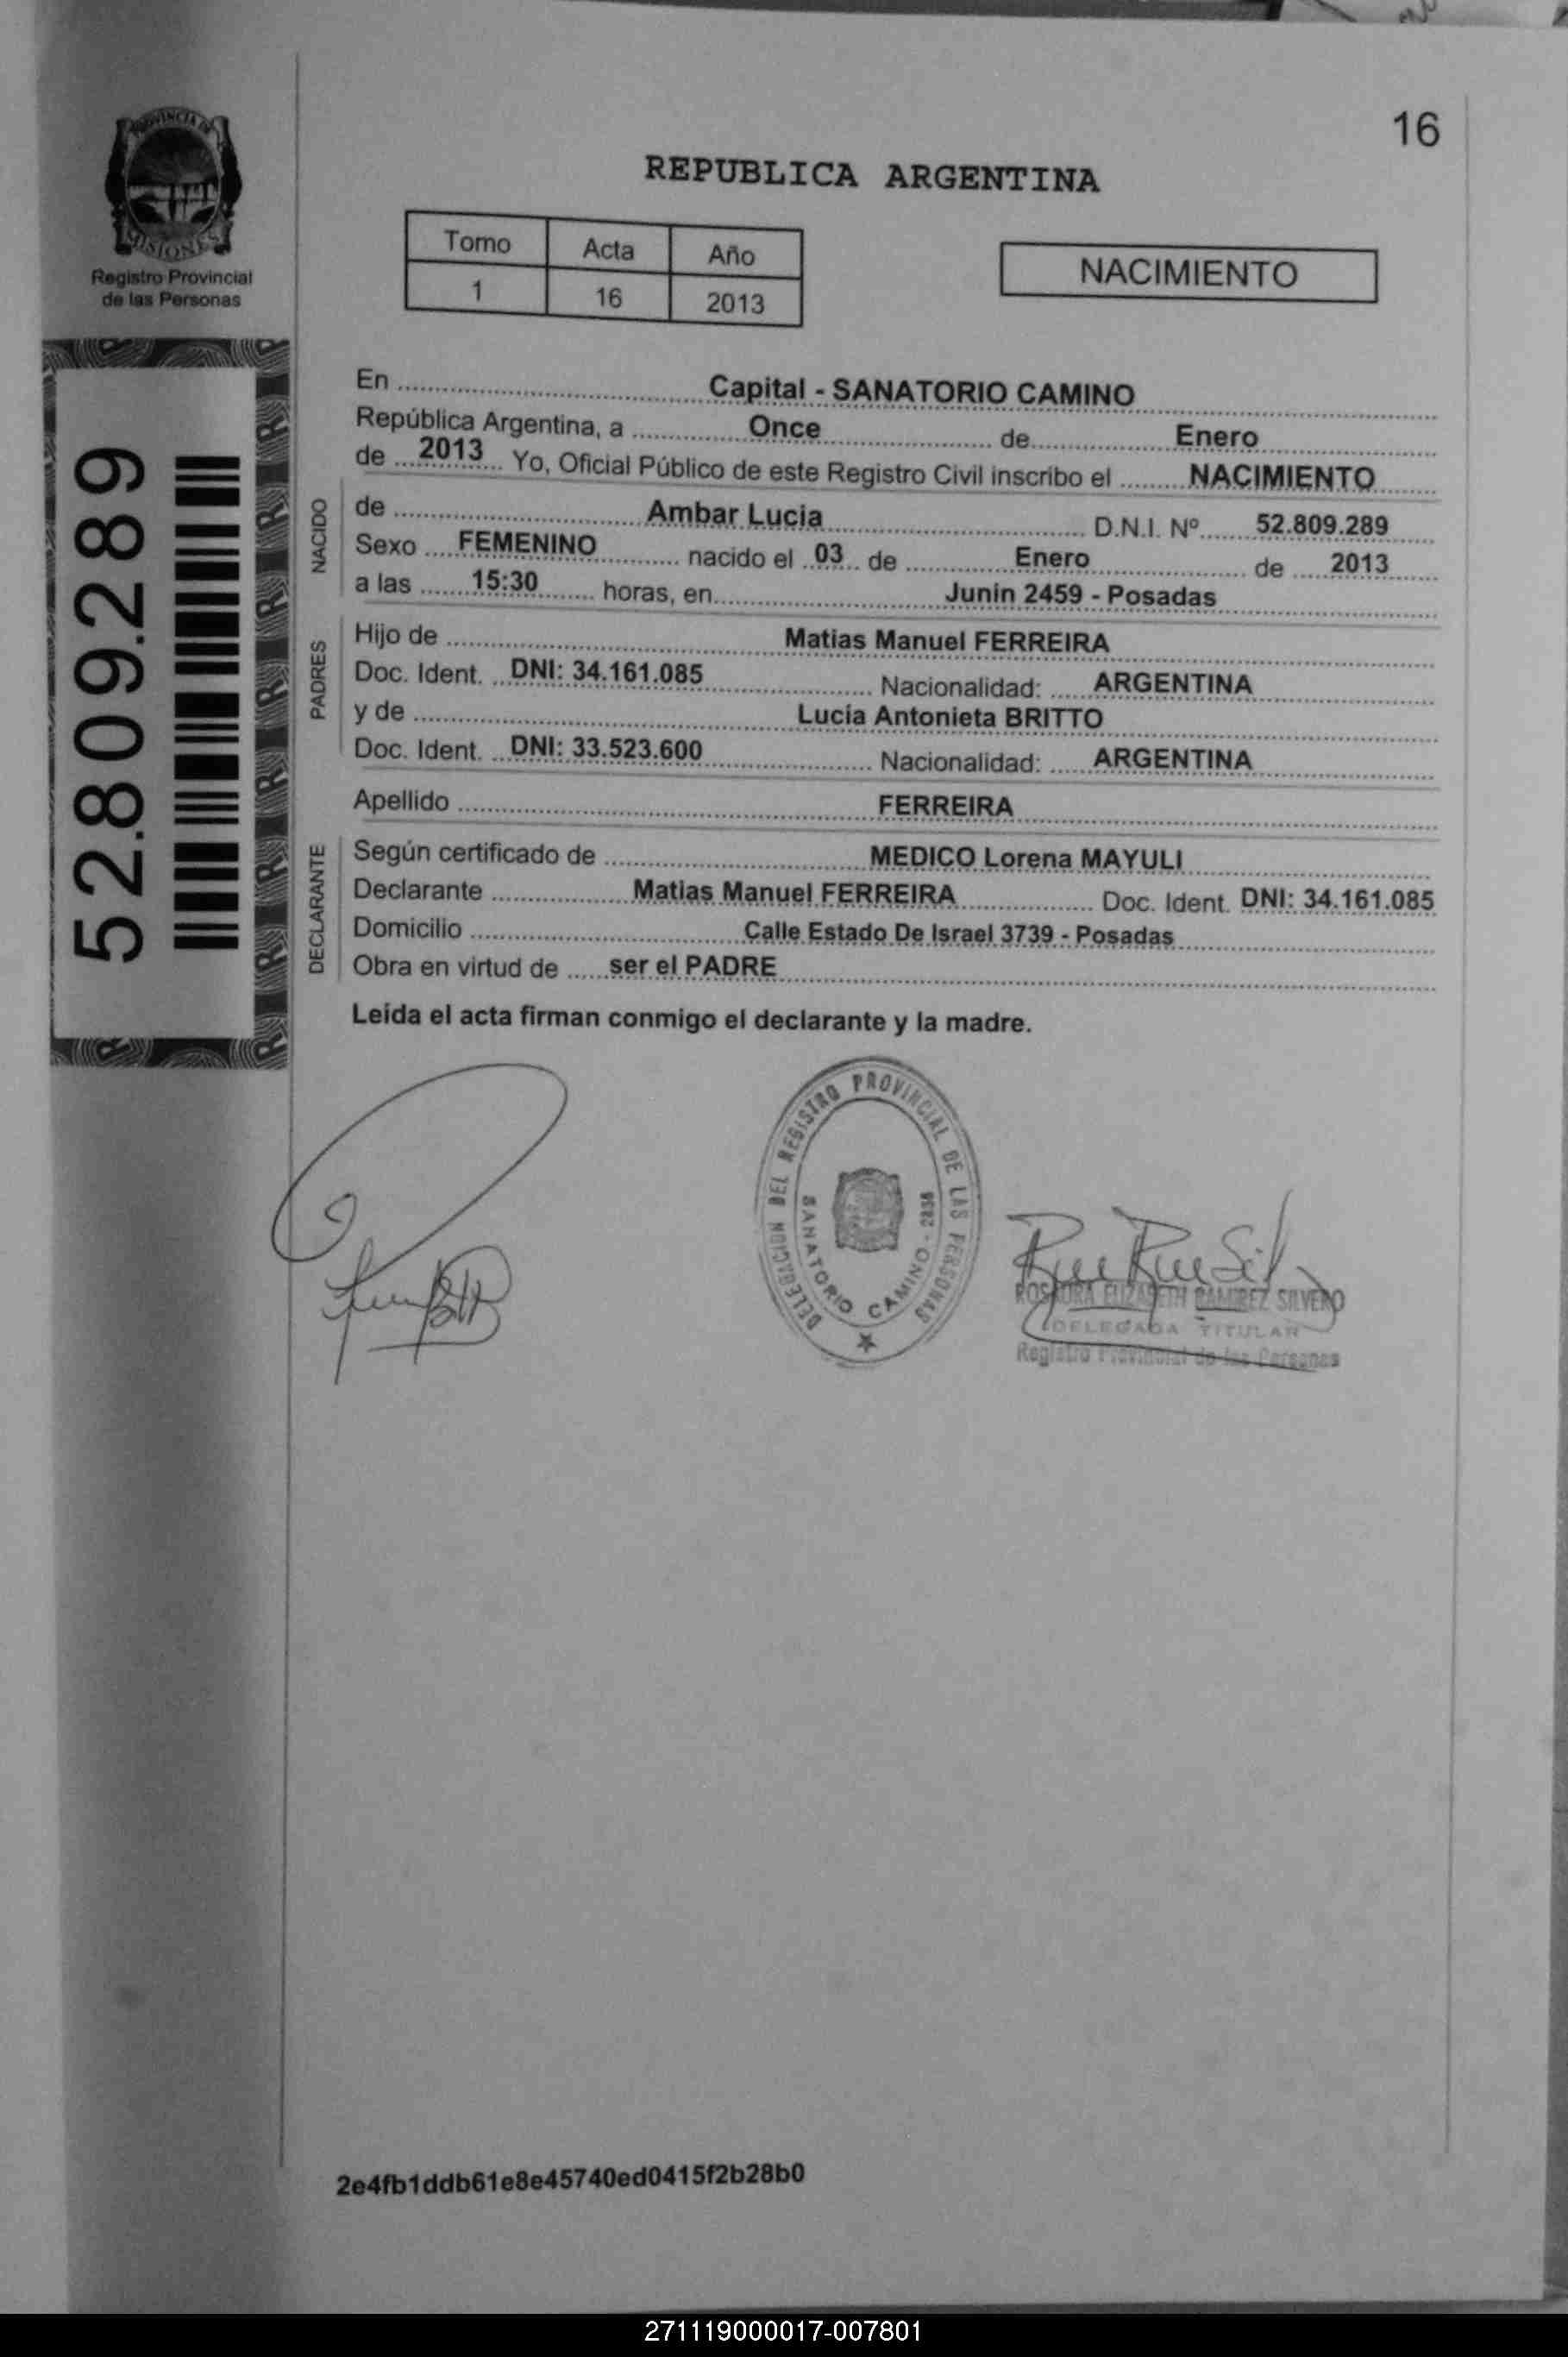 16
PROVINCIA DE
MISIONES
Registro Provincial
de las Personas
REPUBLICA ARGENTINA
Tomo Acta Año
1 16 2013
NACIMIENTO
52.809.289
En Capital - SANATORIO CAMINO
República Argentina, a Once de Enero
de 2013 Yo, Oficial Público de este Registro Civil inscribo el NACIMIENTO
NACIDO
de Ambar Lucia D.N.I. Nº 52.809.289
Sexo FEMENINO nacido el 03 de Enero de 2013
a las 15:30 horas, en Junin 2459 - Posadas
PADRES
Hijo de Matias Manuel FERREIRA
Doc. Ident. DNI: 34.161.085 Nacionalidad: ARGENTINA
y de Lucia Antonieta BRITTO
Doc. Ident. DNI: 33.523.600 Nacionalidad: ARGENTINA
Apellido FERREIRA
DECLARANTE
Según certificado de MEDICO Lorena MAYULI
Declarante Matias Manuel FERREIRA Doc. Ident. DNI: 34.161.085
Domicilio Calle Estado De Israel 3739 - Posadas
Obra en virtud de ser el PADRE
Leida el acta firman conmigo el declarante y la madre.
DELEGACION DEL REGISTRO PROVINCIAL DE LAS PERSONAS
SANATORIO CAMINO - 2838
ROSAURA ELIZABETH RAMIREZ SILVERO
DELEGADA TITULAR
Registro Provincial de las Personas
2e4fb1ddb61e8e45740ed0415f2b28b0
271119000017-007801